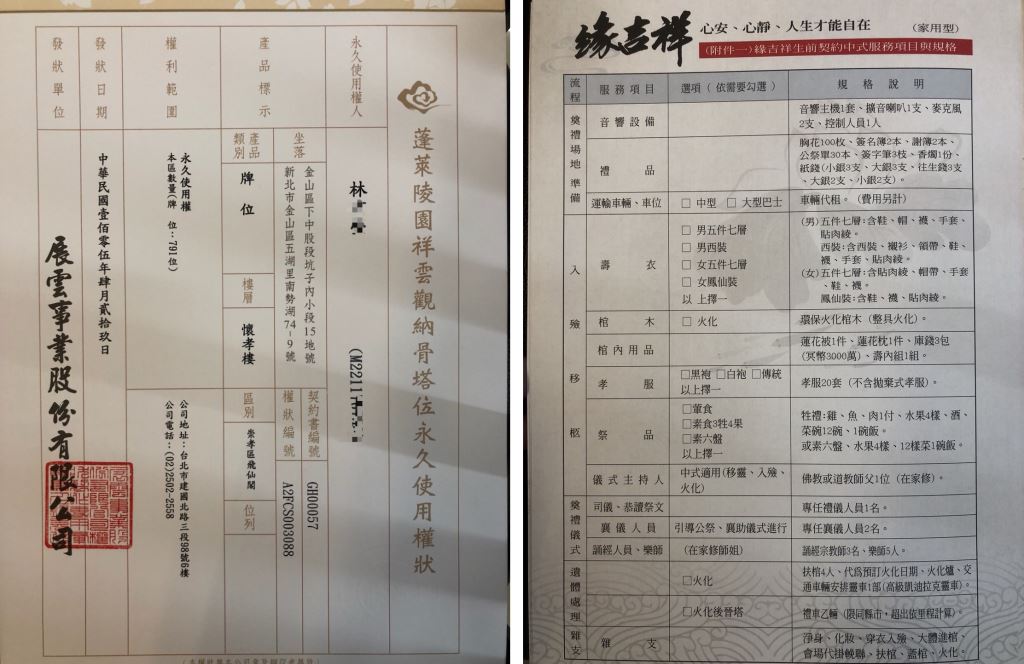 蓬萊陵園祥雲觀納骨塔位永久使用權狀
永久使用權人
林
(M22111
產品標示
坐落
金山區下中股段坑子內小段15地號
新北市金山區五湖里南勢湖74-9號
契約書編號
GH00057
權狀編號
A2FCS003088
產品類別
牌位
樓層
懷孝樓
區別
崇孝區飛仙閣
位列
權利範圍
永久使用權
本區數量(牌 位:791位)
公司地址:台北市建國北路三段98號6樓
公司電話:(02)2502-2558
發狀日期
中華民國壹佰零伍年肆月貳拾玖日
發狀單位
展雲事業股份有限公司
緣吉祥 心安、心靜、人生才能自在 (家用型)
(附件一)緣吉祥生前契約中式服務項目與規格
流程 服務項目 選項(依需要勾選) 規格說明
奠禮場地準備
音響設備 音響主機1套、擴音喇叭1支、麥克風
2支、控制人員1人
禮品 胸花100枚、簽名簿2本、謝簿2本、
公祭單30本、簽字筆3枝、香燭1份、
紙錢(小銀3支、大銀3支、往生錢3支
、大銀2支、小銀2支)。
運輸車輛、車位 □ 中型 □ 大型巴士 車輛代租。(費用另計)
入殮移柩
壽衣
□ 男五件七層
□ 男西裝
□ 女五件七層
□ 女鳳仙裝
以上擇一
(男)五件七層:含鞋、帽、襪、手套、
貼肉綾。
西裝:含西裝、襯衫、領帶、鞋、
襪、手套、貼肉綾。
(女)五件七層:含貼肉綾、帽帶、手套
、鞋、襪。
鳳仙裝:含鞋、襪、貼肉綾。
棺木 □ 火化 環保火化棺木(整具火化)。
棺內用品 蓮花被1件、蓮花枕1件、庫錢3包
(冥幣3000萬)、壽內組1組。
孝服 □黑袍 □白袍 □傳統
以上擇一
孝服20套(不含拋棄式孝服)。
祭品
□葷食
□素食3牲4果
□素六盤
以上擇一
牲禮:雞、魚、肉1付、水果4樣、酒、
菜碗12碗、1碗飯。
或素六盤、水果4樣、12樣菜1碗飯。
儀式主持人 中式適用(移靈、入殮、
火化)
佛教或道教師父1位(在家修)。
奠禮儀式
司儀、恭讀祭文 專任禮儀人員1名。
襄儀人員 引導公祭、襄助儀式進行 專任襄儀人員2名。
誦經人員、樂師 (在家修師姐) 誦經宗教師3名、樂師5人。
遺體處理
□火化 扶棺4人、代為預訂火化日期、火化爐、交
通車輛安排靈車1部(高級凱迪拉克靈車)。
□火化後晉塔 禮車乙輛(限同縣市,超出依里程計算)。
雜支
雜支 淨身、化妝、穿衣入殮、大體進棺、
會場代掛輓聯、扶棺、蓋棺、火化。